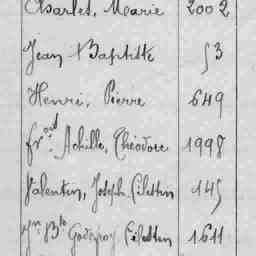 Charles, Marie 2002
Jean Baptiste 53
Henri, Pierre 649
frçois Achille, Théodore 1998
Valentin, Joseph, Célestin 145
Jn Bte Godefroy, Célestin 1611